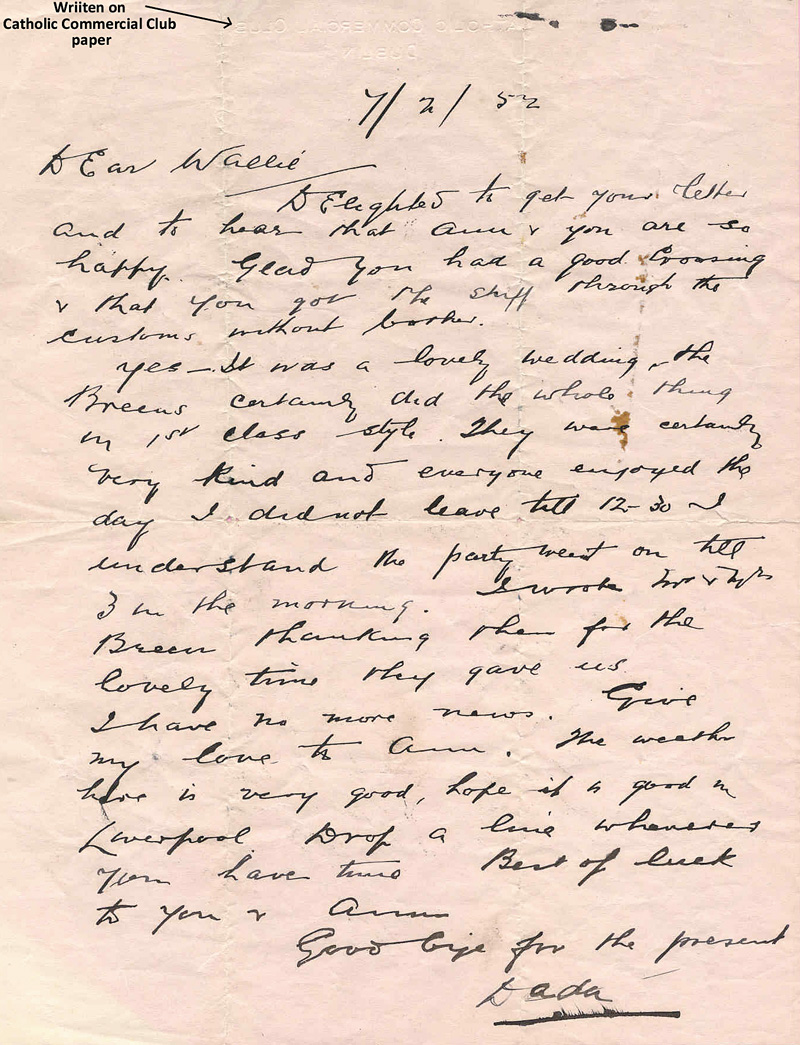 Wriiten on
Catholic Commercial Club
paper
CATHOLIC COMMERCIAL CLUB
DUBLIN
7/2/52
DEar Wallie
DElighted to get your letter
and to hear that Ann & you are so
happy. Glad you had a good Crossing
& that you got the stuff through the
customs without bother.
Yes – It was a lovely wedding, the
Breens certainly did the whole thing
in 1st class style. They were certainly
very kind and everyone enjoyed the
day I did not leave till 12-30 I
understand the party went on till
3 in the morning. I wrote Mr & Mrs
Breen thanking them for the
lovely time they gave us
I have no more news. Give
my love to Ann. The weather
here is very good, hope it is good in
Liverpool Drop a line whenever
you have time Best of luck
to you & Ann
Good bye for the present
Dada